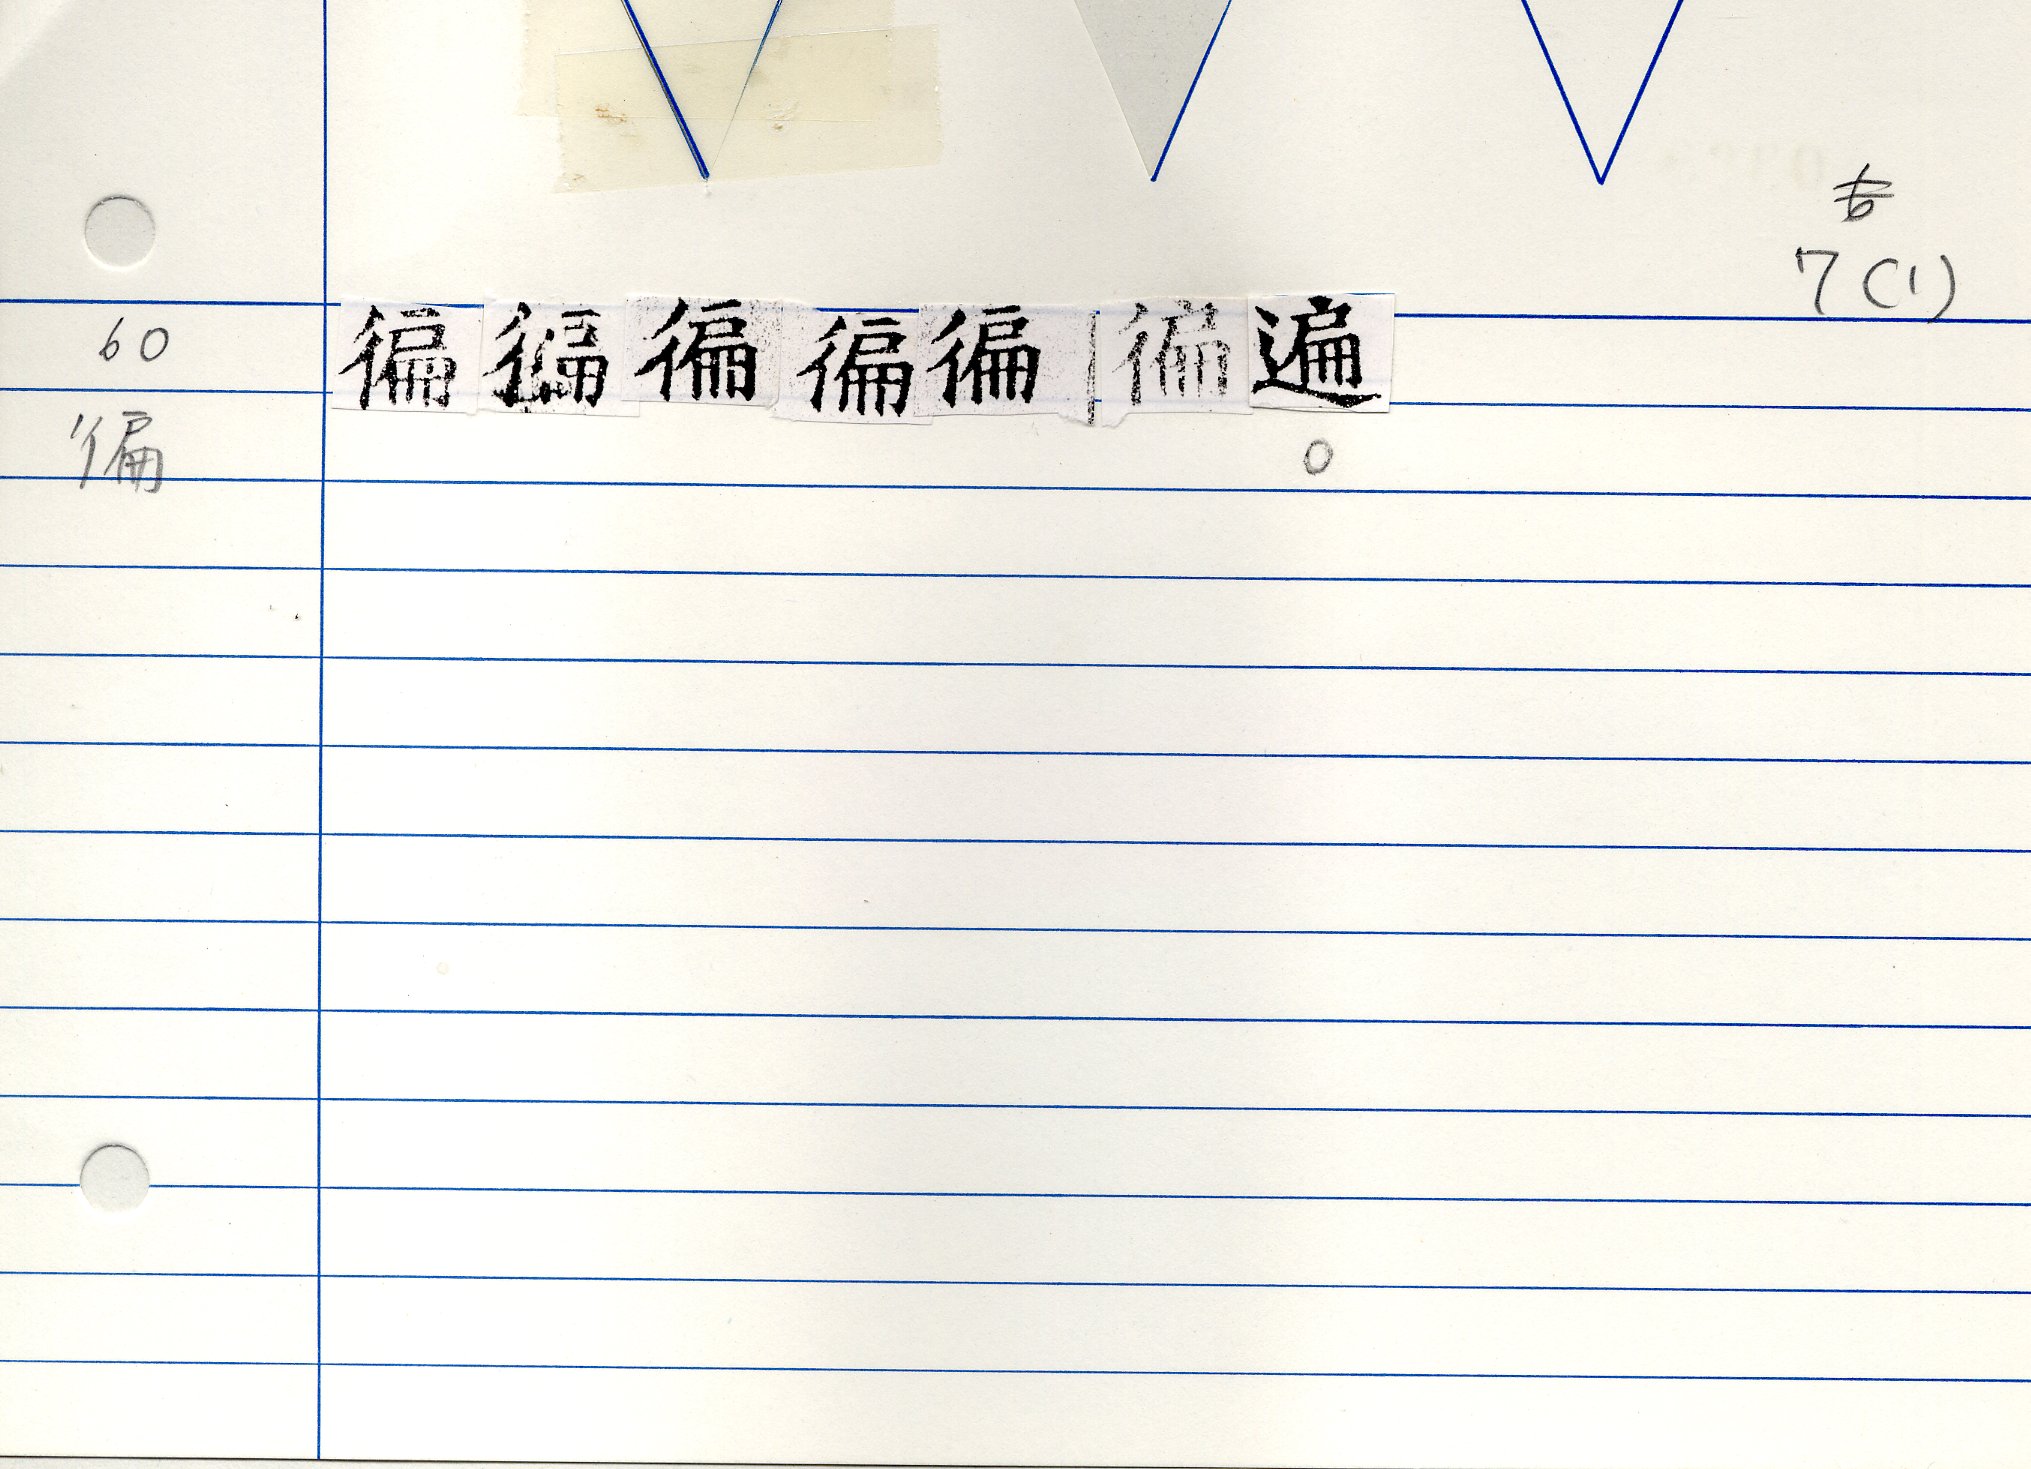 7(1)
60
徧徧徧徧徧徧遍
徧
○